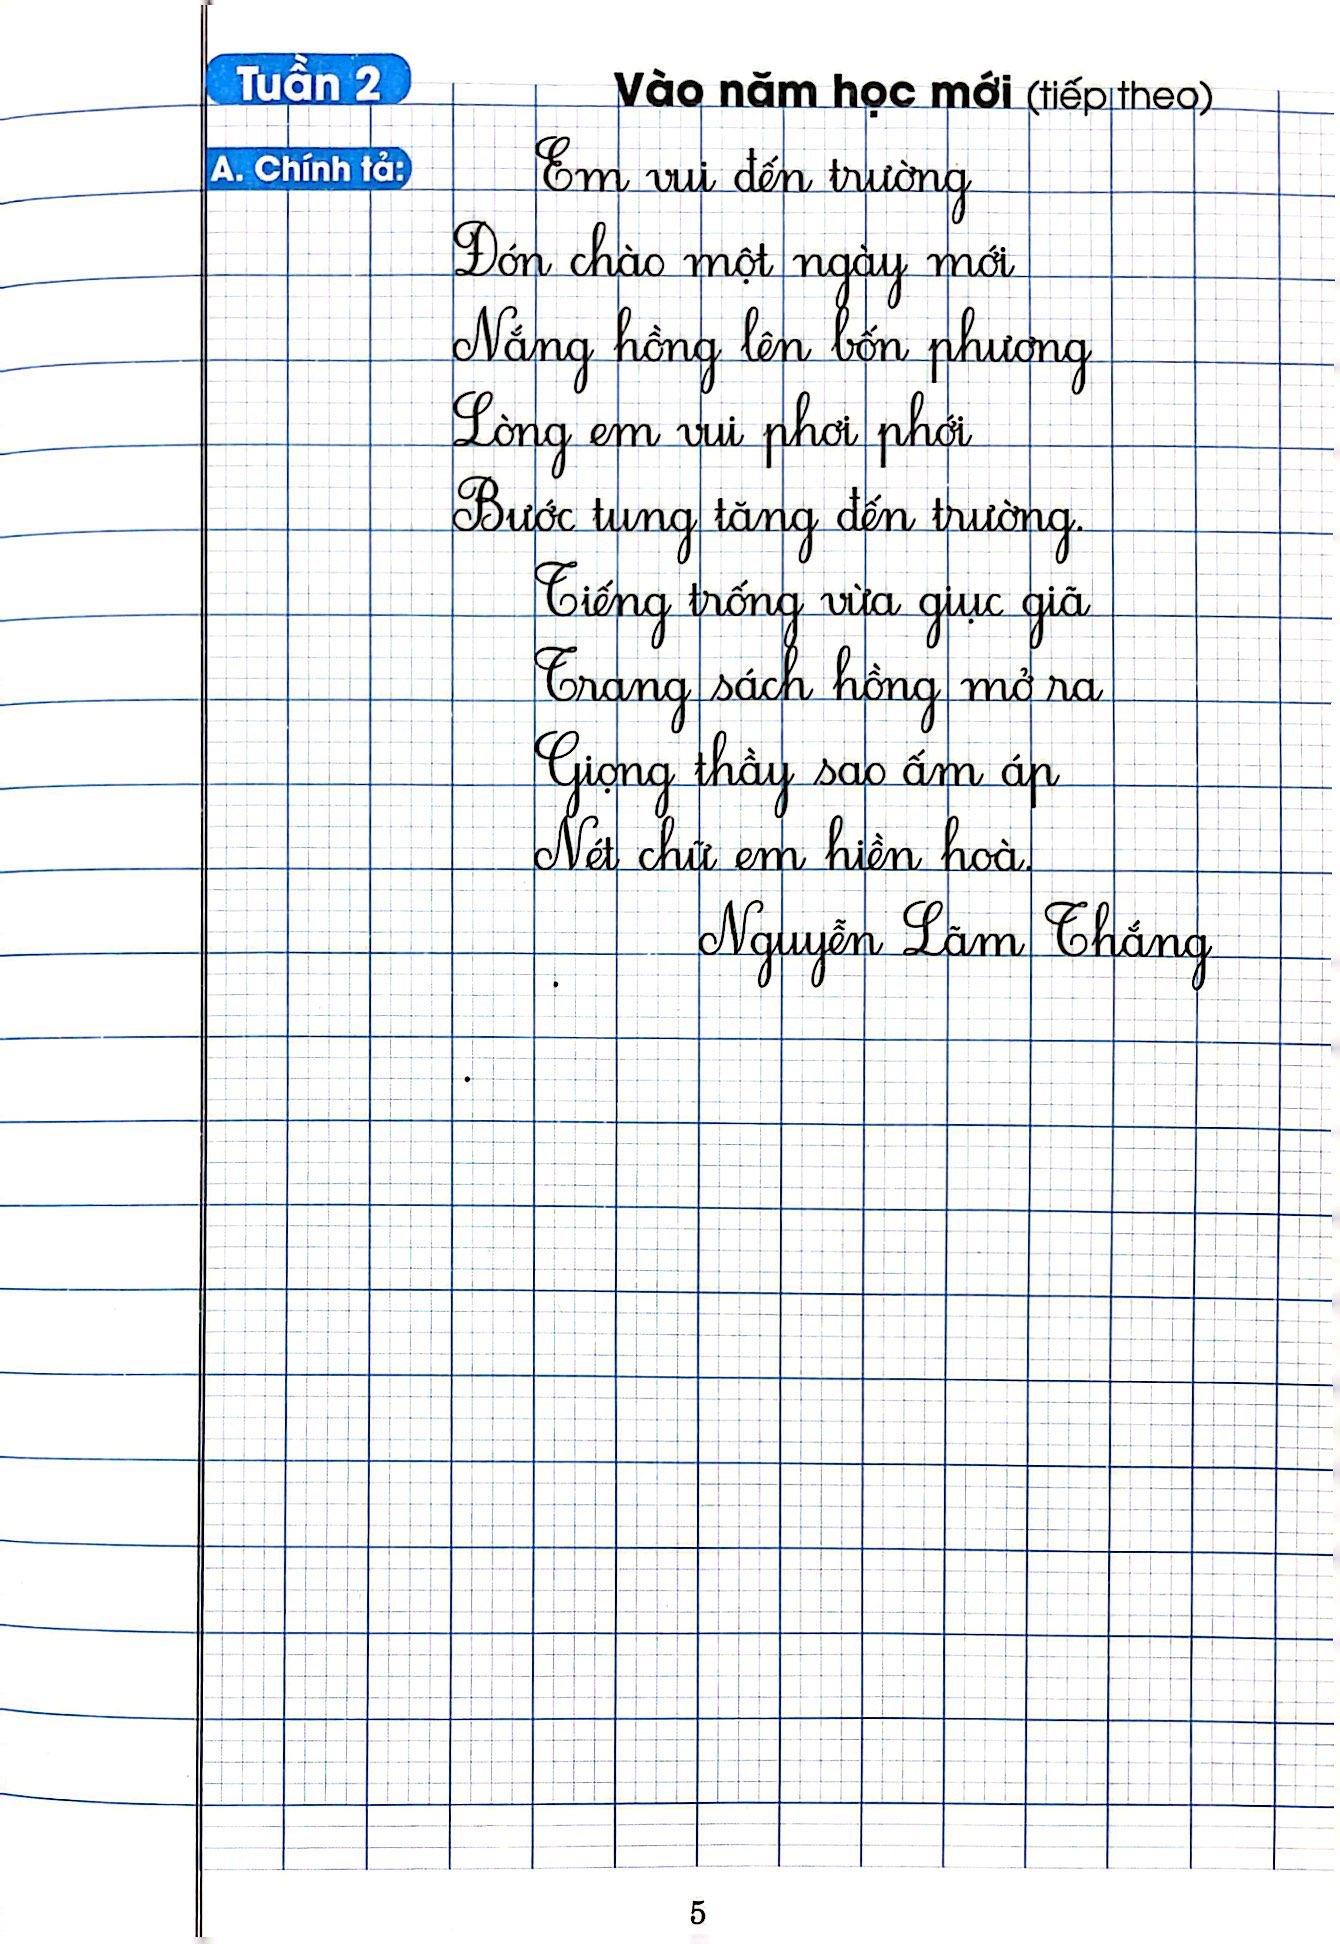 Tuần 2
Vào năm học mới (tiếp theo)
A. Chính tả:
Em vui đến trường
Đón chào một ngày mới
Nắng hồng lên bốn phương
Lòng em vui phơi phới
Bước tung tăng đến trường.
Tiếng trống vừa giục giã
Trang sách hồng mở ra
Giọng thầy sao ấm áp
Nét chữ em hiền hoà.
Nguyễn Lãm Thắng
5